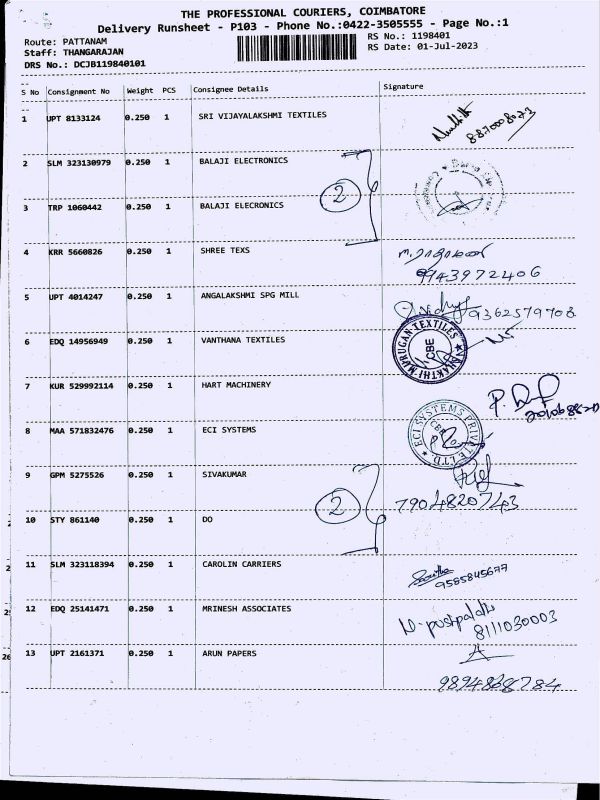 THE PROFESSIONAL COURIERS, COIMBATORE
Delivery Runsheet - P103 - Phone No.:0422-3505555 - Page No.:1
Route: PATTANAM
RS No.: 1198401
Staff: THANGARAJAN
RS Date: 01-Jul-2023
DRS No.: DCJB119840101
S No Consignment No Weight PCS Consignee Details Signature
1 UPT 8133124 0.250 1 SRI VIJAYALAKSHMI TEXTILES
8870008073
2 SLM 323130979 0.250 1 BALAJI ELECTRONICS
2
3 TRP 1060442 0.250 1 BALAJI ELECRONICS
4 KRR 5660826 0.250 1 SHREE TEXS
9943972406
5 UPT 4014247 0.250 1 ANGALAKSHMI SPG MILL
9362579708
6 EDQ 14956949 0.250 1 VANTHANA TEXTILES
MURUGAN TEXTILES
CBE
7 KUR 529992114 0.250 1 HART MACHINERY
8 MAA 571832476 0.250 1 ECI SYSTEMS
ECI SYSTEMS PRIVATE LTD
9 GPM 5275526 0.250 1 SIVAKUMAR
7904820743
2
10 STY 861140 0.250 1 DO
11 SLM 323118394 0.250 1 CAROLIN CARRIERS
9585845677
12 EDQ 25141471 0.250 1 MRINESH ASSOCIATES
8111030003
13 UPT 2161371 0.250 1 ARUN PAPERS